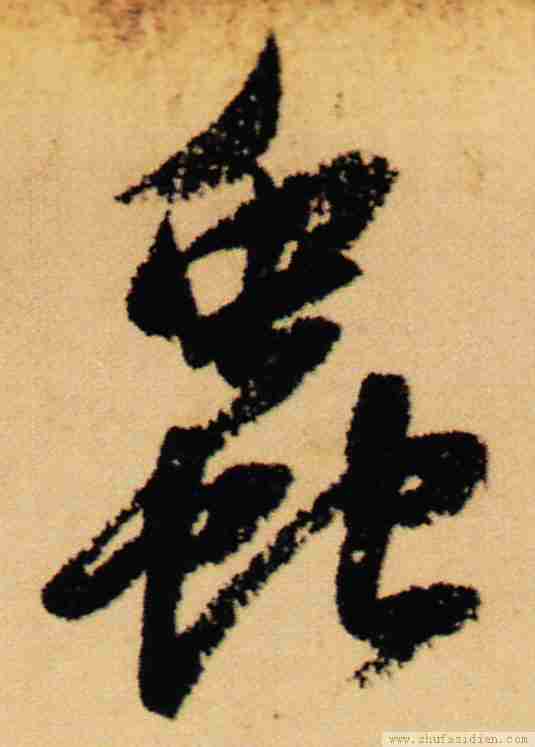 蟲
www.shufazidian.com